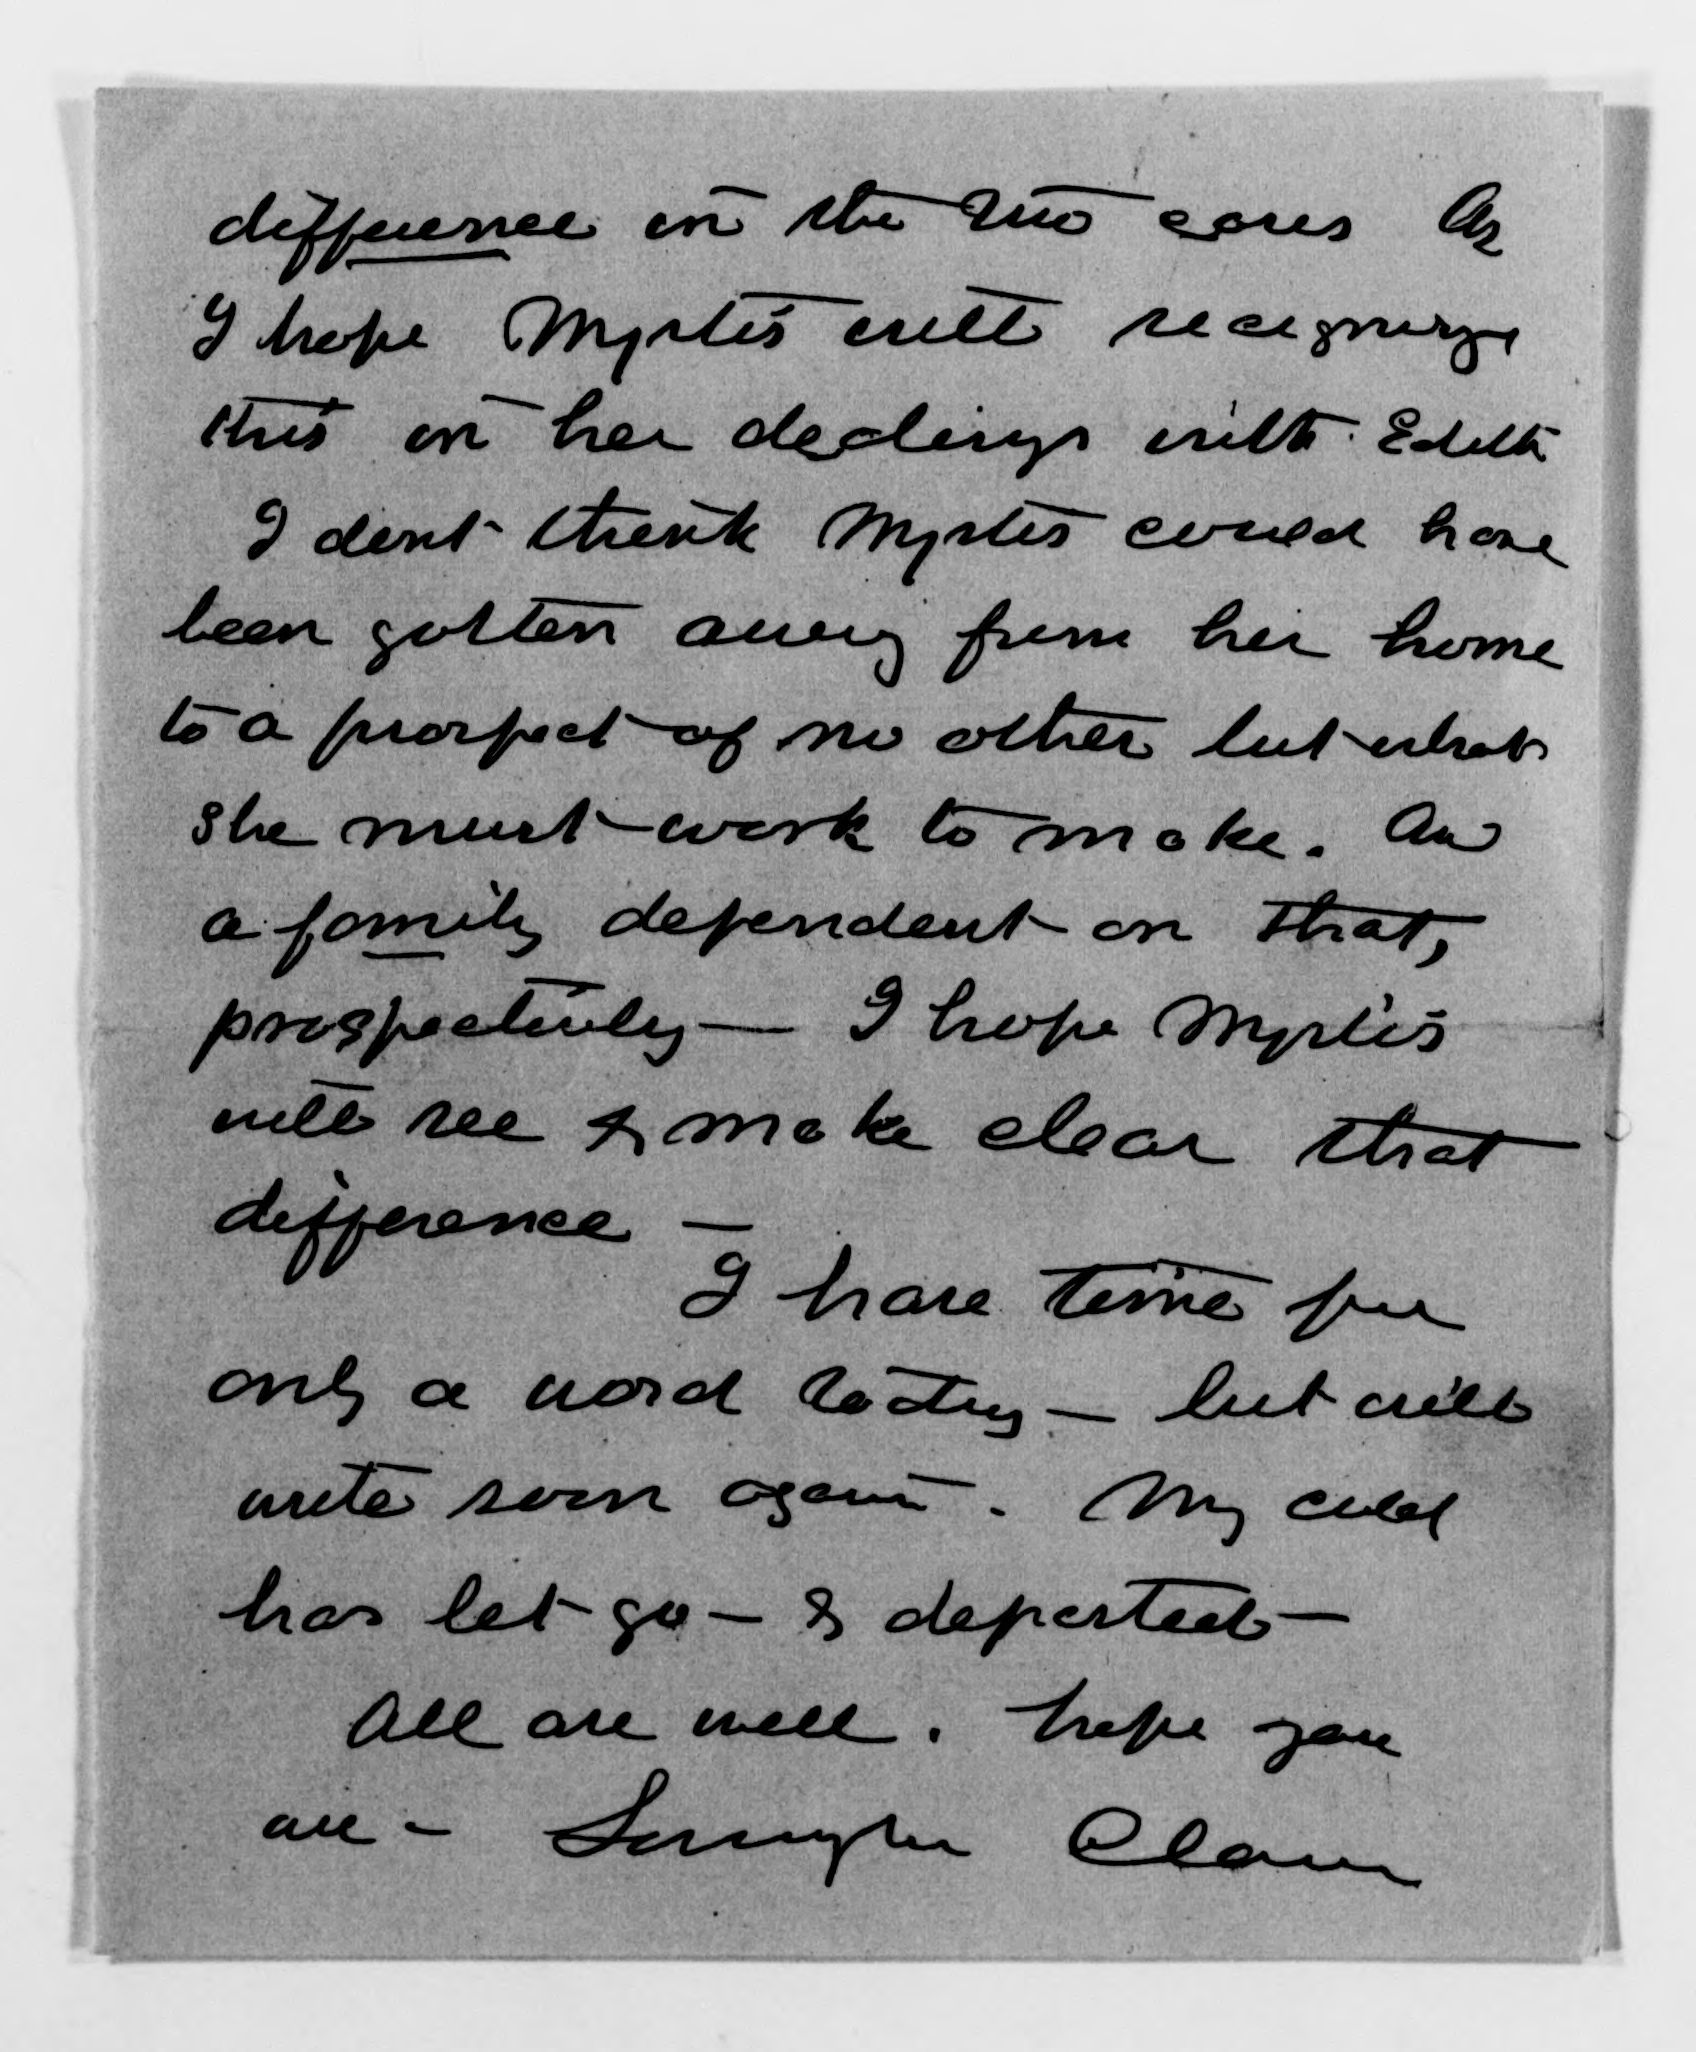 difference in the two cases As
I hope Myrtis will recognize
this in her dealings with Edith
I dont think Myrtis could have
been gotten away from her home
to a prospect of no other but what
she must work to make. And
a family dependent on that,
prospectively — I hope Myrtis
will see & make clear that
difference —
I have time for
only a word today — but will
write soon again. My cold
has let go — & departed —
All are well. hope you
are - Lovingly Clara